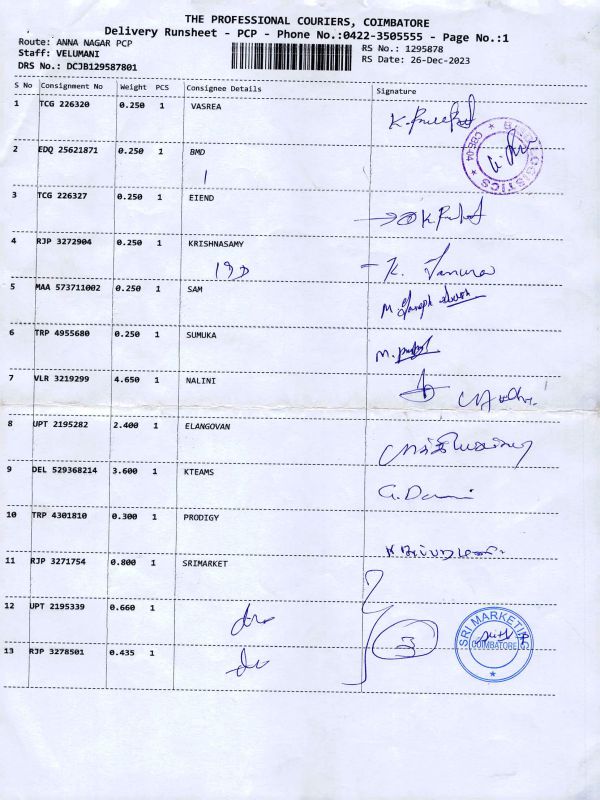 THE PROFESSIONAL COURIERS, COIMBATORE
Delivery Runsheet - PCP - Phone No.:0422-3505555 - Page No.:1
Route: ANNA NAGAR PCP
RS No.: 1295878
Staff: VELUMANI
RS Date: 26-Dec-2023
DRS No.: DCJB129587801
S No Consignment No Weight PCS Consignee Details Signature
1 TCG 226320 0.250 1 VASREA
2 EDQ 25621871 0.250 1 BMD
3 TCG 226327 0.250 1 EIEND
4 RJP 3272904 0.250 1 KRISHNASAMY
5 MAA 573711002 0.250 1 SAM
6 TRP 4955680 0.250 1 SUMUKA
7 VLR 3219299 4.650 1 NALINI
8 UPT 2195282 2.400 1 ELANGOVAN
9 DEL 529368214 3.600 1 KTEAMS
10 TRP 4301810 0.300 1 PRODIGY
11 RJP 3271754 0.800 1 SRIMARKET
12 UPT 2195339 0.660 1
3
SRI MARKETING
COIMBATORE
13 RJP 3278501 0.435 1